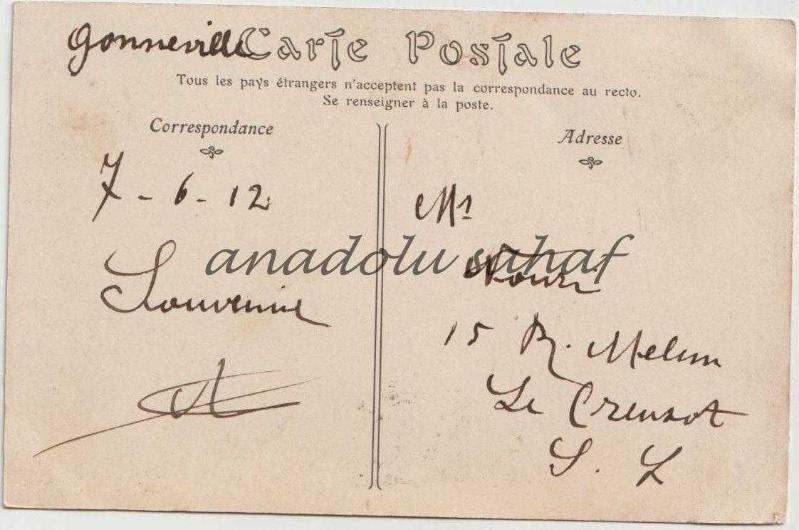 Gonneville
Carte Postale
Tous les pays étrangers n'acceptent pas la correspondance au recto.
Se renseigner à la poste.
Correspondance
7-6-12
Souvenir
Adresse
Mr
Nouri
15 R. Melun
Le Creusot
S. L
anadolu sahaf